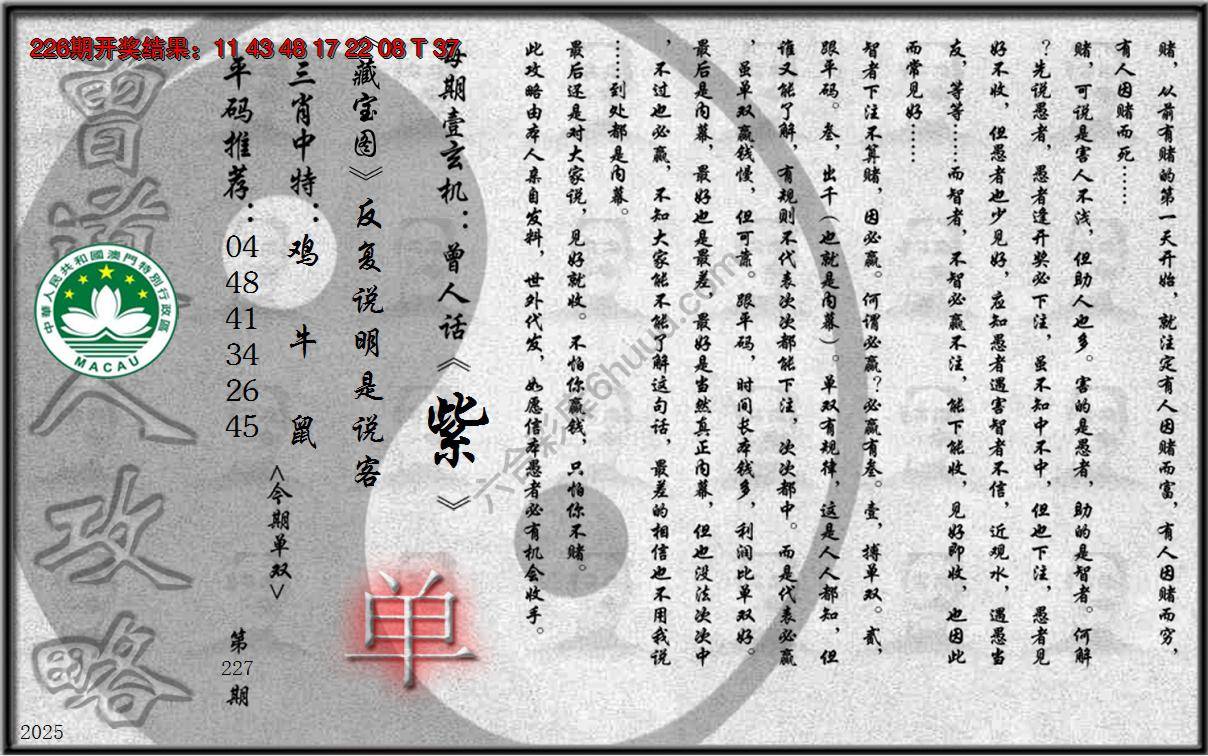 226期开奖结果：11 43 48 17 22 08 T 37
赌，从前有赌的第一天开始，就注定有人因赌而富，有人因赌而穷，
有人因赌而死……
赌，可说是害人不浅，但助人也多。害的是愚者，助的是智者。何解
？先说愚者，愚者逢开奖必下注，虽不知中不中，但也下注，愚者见
好不收，但愚者也少见好，应知愚者遇害智者不信，近观水，遇愚当
友，等等……而智者，不智必赢不注，能下能收，见好即收，也因此
而常见好……
智者下注不算赌，因必赢。何谓必赢？必赢有叁。壹，搏单双。贰，
跟平码。叁，出千（也就是内幕）。单双有规律，这是人人都知，但
谁又能了解，有规则不代表次次都能下注，次次都中。而是代表必赢
，虽单双赢钱慢，但可靠。跟平码，时间长本钱多，利润比单双好。
最后是内幕，最好也是最差，最好是当然真正内幕，但也没法次次中
，不过也必赢，不知大家能不能了解这句话，最差的相信也不用我说
……到处都是内幕。
最后还是对大家说，见好就收。不怕你赢钱，只怕你不赌。
此攻略由本人亲自发料，世外代发，如愿信本愚者必有机会收手。
每期壹玄机：曾人话《紫》
《藏宝图》反复说明是说客
单
三肖中特：鸡 牛 鼠
<今期单双>
平码推荐：04 48 41 34 26 45
第227期
曾道人攻略
中華人民共和國澳門特別行政區
MACAU
2025
六合彩库6huuu.com